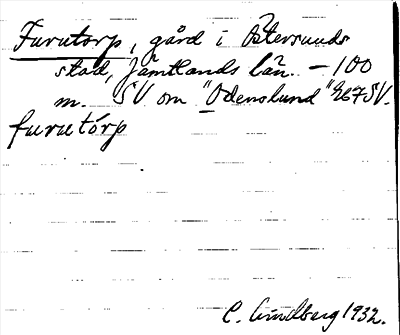 Furutorp, gård i Östersunds
stad, Jämtlands län. – 100
m. SV om "Odenslund" 267SV.
furutórp
C. Lindberg 1932.